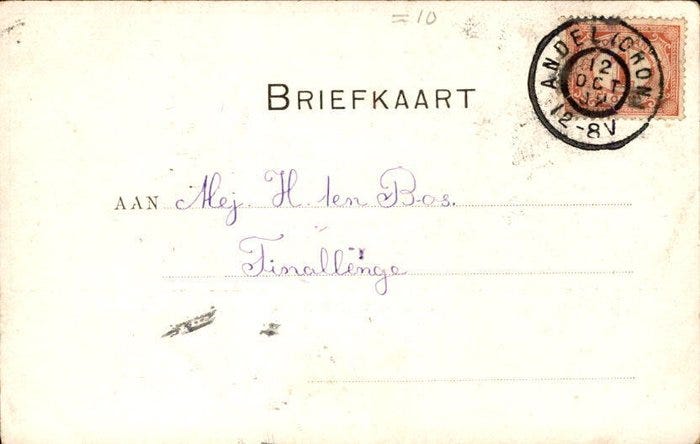 =10
ANDEL (GRON)
12
OCT
12-8V
BRIEFKAART
AAN Mej. H. ten Bos.
Tinallinge